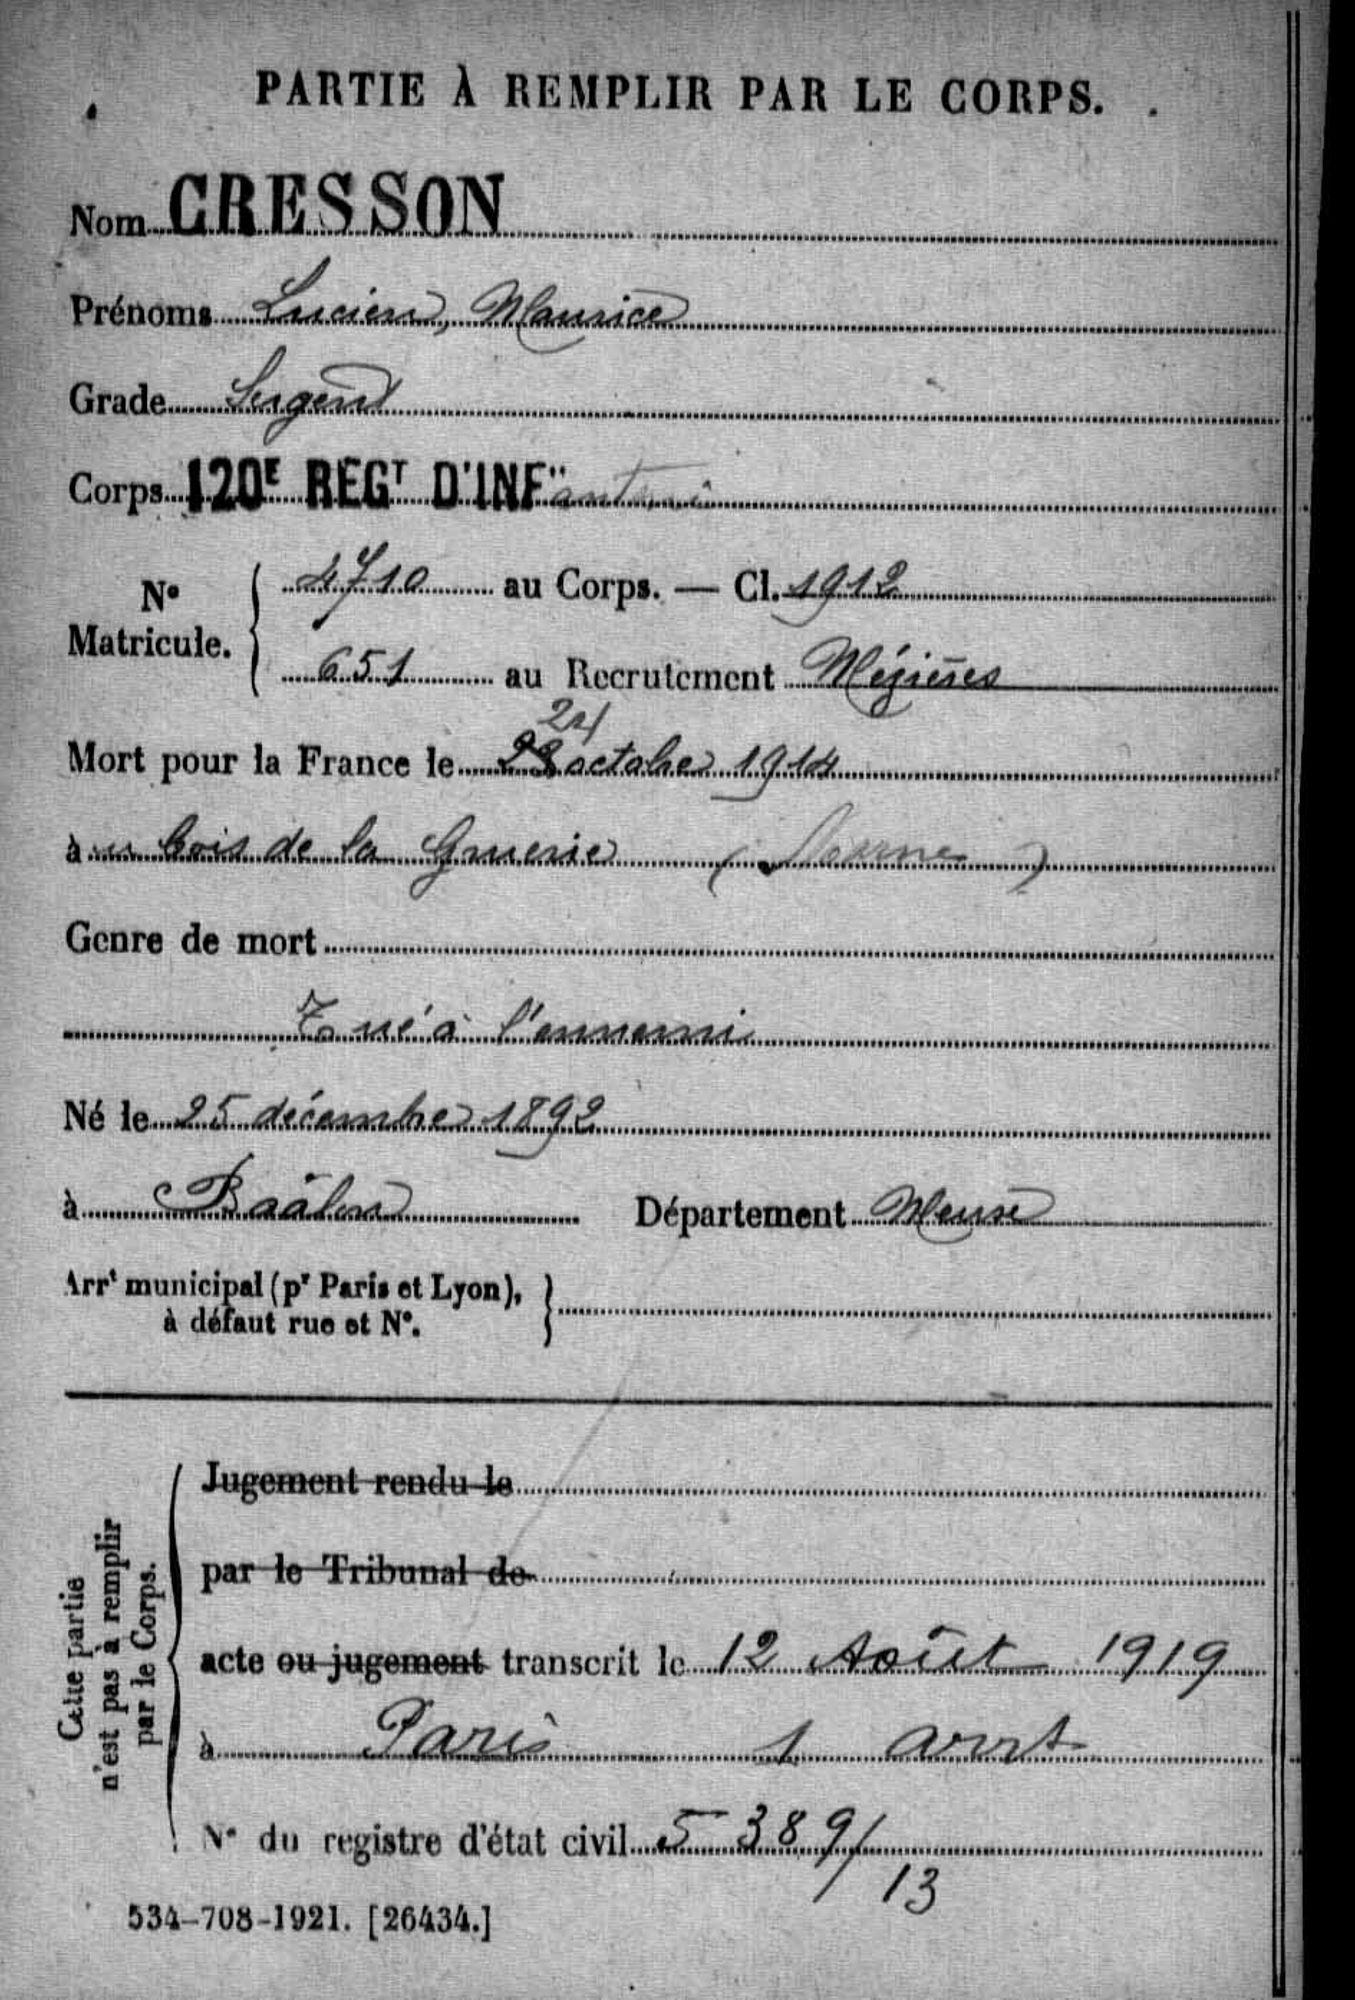 PARTIE À REMPLIR PAR LE CORPS.
Nom CRESSON
Prénoms Lucien, Maurice
Grade Sergent
Corps 120E REGT D'INF"anterie
N° Matricule. 4710 au Corps. — Cl. 1912
651 au Recrutement Mézières
24
Mort pour la France le octobre 1914
à u bois de la Gruerie (Marne)
Genre de mort
Tué à l'ennemi
Né le 25 décembre 1892
à Baâlon Département Meuse
Arrt municipal (pr Paris et Lyon),
à défaut rue et N°.
Cette partie
n'est pas à remplir
par le Corps.
Jugement rendu le
par le Tribunal de
acte ou jugement transcrit le 12 Août 1919
à Paris 1 arrt
N° du registre d'état civil 5389/
13
534-708-1921. [26434.]